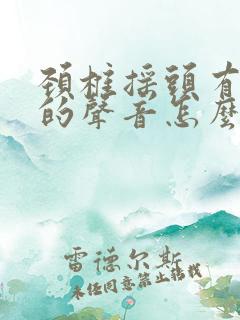 頸柱搖頭有
的聲音怎麼
雷德尔斯
未经同意禁止转载